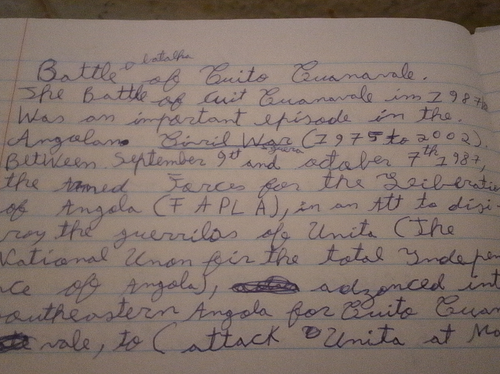 a batalha
Battle of Cuito Cuanavale.
The Battle of Cuit Cuanavale im 1987
Was an important episode in the.
Angolano Civil War (1975 to 2002).
guerra
Between September 9st and octaber 7th 1987,
the armed Forces for the Liberati
of Angola (FAPLA), in an Att to disi-
roy the guerrilas of Unita (The
National Union fir the total Indepen
ce of Angola), advonced int
southeastern Angola for Cuito Cuan
vale, to (attack Unita at Ma